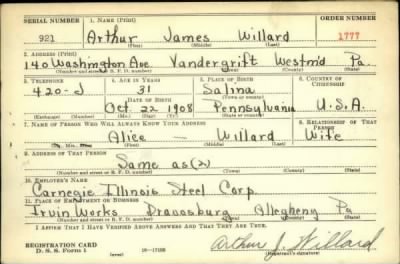 SERIAL NUMBER 1. NAME (Print) ORDER NUMBER
921 Arthur James Willard 1777
(First) (Middle) (Last)
2. ADDRESS (Print)
140 Washington Ave. Vandergrift Westm'd Pa.
(Number and street or R. F. D. number) (Town) (County) (State)
3. TELEPHONE 4. AGE IN YEARS 5. PLACE OF BIRTH 6. COUNTRY OF CITIZENSHIP
420-J 31 Salina
(Town or county)
DATE OF BIRTH
Oct 22 1908 Pennsylvania U.S.A.
(Exchange) (Number) (Mo.) (Day) (Yr.) (State or country)
7. NAME OF PERSON WHO WILL ALWAYS KNOW YOUR ADDRESS 8. RELATIONSHIP OF THAT PERSON
Alice — Willard Wife
(Mr., Mrs., Miss) (First) (Middle) (Last)
9. ADDRESS OF THAT PERSON
Same as (2)
(Number and street or R. F. D. number) (Town) (County) (State)
10. EMPLOYER'S NAME
Carnegie Illinois Steel Corp.
11. PLACE OF EMPLOYMENT OR BUSINESS
Irvin Works Dravosburg Allegheny Pa
(Number and street or R. F. D. number) (Town) (County) (State)
I AFFIRM THAT I HAVE VERIFIED ABOVE ANSWERS AND THAT THEY ARE TRUE.
REGISTRATION CARD
D. S. S. Form 1 (over) 16—17105 Arthur J. Willard
(Registrant's signature)